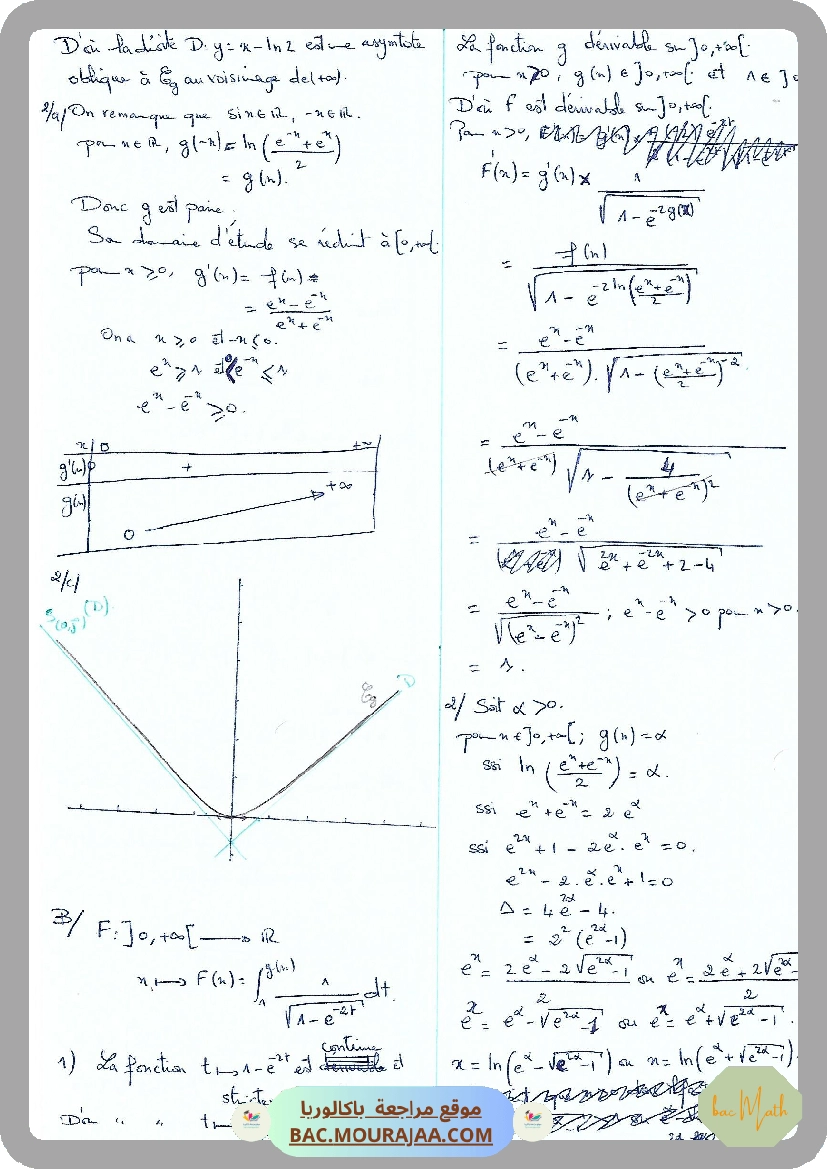 D'où la droite D: y = x - ln 2 est une asymptote
oblique à ζg au voisinage de (+∞).
2/a/ On remarque que si x ∈ ℝ, -x ∈ ℝ.
pour x ∈ ℝ, g(-x) = ln((e^-x + e^x)/2)
= g(x).
Donc g est paire;
Son domaine d'étude se réduit à [0,+∞[.
pour x ≥ 0, g'(x) = f(x)
= (e^x - e^-x)/(e^x + e^-x)
On a x ≥ 0 et -x ≤ 0.
e^x ≥ 1 et 0 < e^-x ≤ 1
e^x - e^-x ≥ 0.
x | 0 +∞
g'(x) 0 +
g(x) 0 → +∞
2/c/
S(0,j)(D)
ζg D
B/ F: ]0,+∞[ → ℝ
x ↦ F(x) = ∫_1^g(x) 1/√(1 - e^-2t) dt.
1) La fonction t ↦ 1 - e^-2t est continue et
D'où " " t ↦
La fonction g dérivable sur ]0,+∞[.
pour x > 0, g(x) ∈ ]0,+∞[ et 1 ∈ ]0
D'où F est dérivable sur ]0,+∞[.
Pour x > 0,
F'(x) = g'(x) × 1/√(1 - e^-2g(x))
= f(x)/√(1 - e^(-2 ln((e^x + e^-x)/2)))
= (e^x - e^-x)/((e^x + e^-x).√(1 - ((e^x + e^-x)/2)^-2))
= (e^x - e^-x)/((e^x + e^-x)√(1 - 4/(e^x + e^-x)^2))
= (e^x - e^-x)/√(e^2x + e^-2x + 2 - 4)
= (e^x - e^-x)/√((e^x - e^-x)^2) ; e^x - e^-x > 0 pour x > 0.
= 1.
2/ Soit α > 0.
pour x ∈ ]0,+∞[ ; g(x) = α
ssi ln((e^x + e^-x)/2) = α.
ssi e^x + e^-x = 2 e^α
ssi e^2x + 1 - 2e^α . e^x = 0.
e^2x - 2.e^α.e^x + 1 = 0
Δ = 4e^2α - 4.
= 2^2 (e^2α - 1)
e^x = (2e^α - 2√(e^2α - 1))/2 ou e^x = (2e^α + 2√(e^2α - 1))/2
e^x = e^α - √(e^2α - 1) ou e^x = e^α + √(e^2α - 1).
x = ln(e^α - √(e^2α - 1)) ou x = ln(e^α + √(e^2α - 1))
موقع مراجعة باكالوريا
BAC.MOURAJAA.COM
bac Math